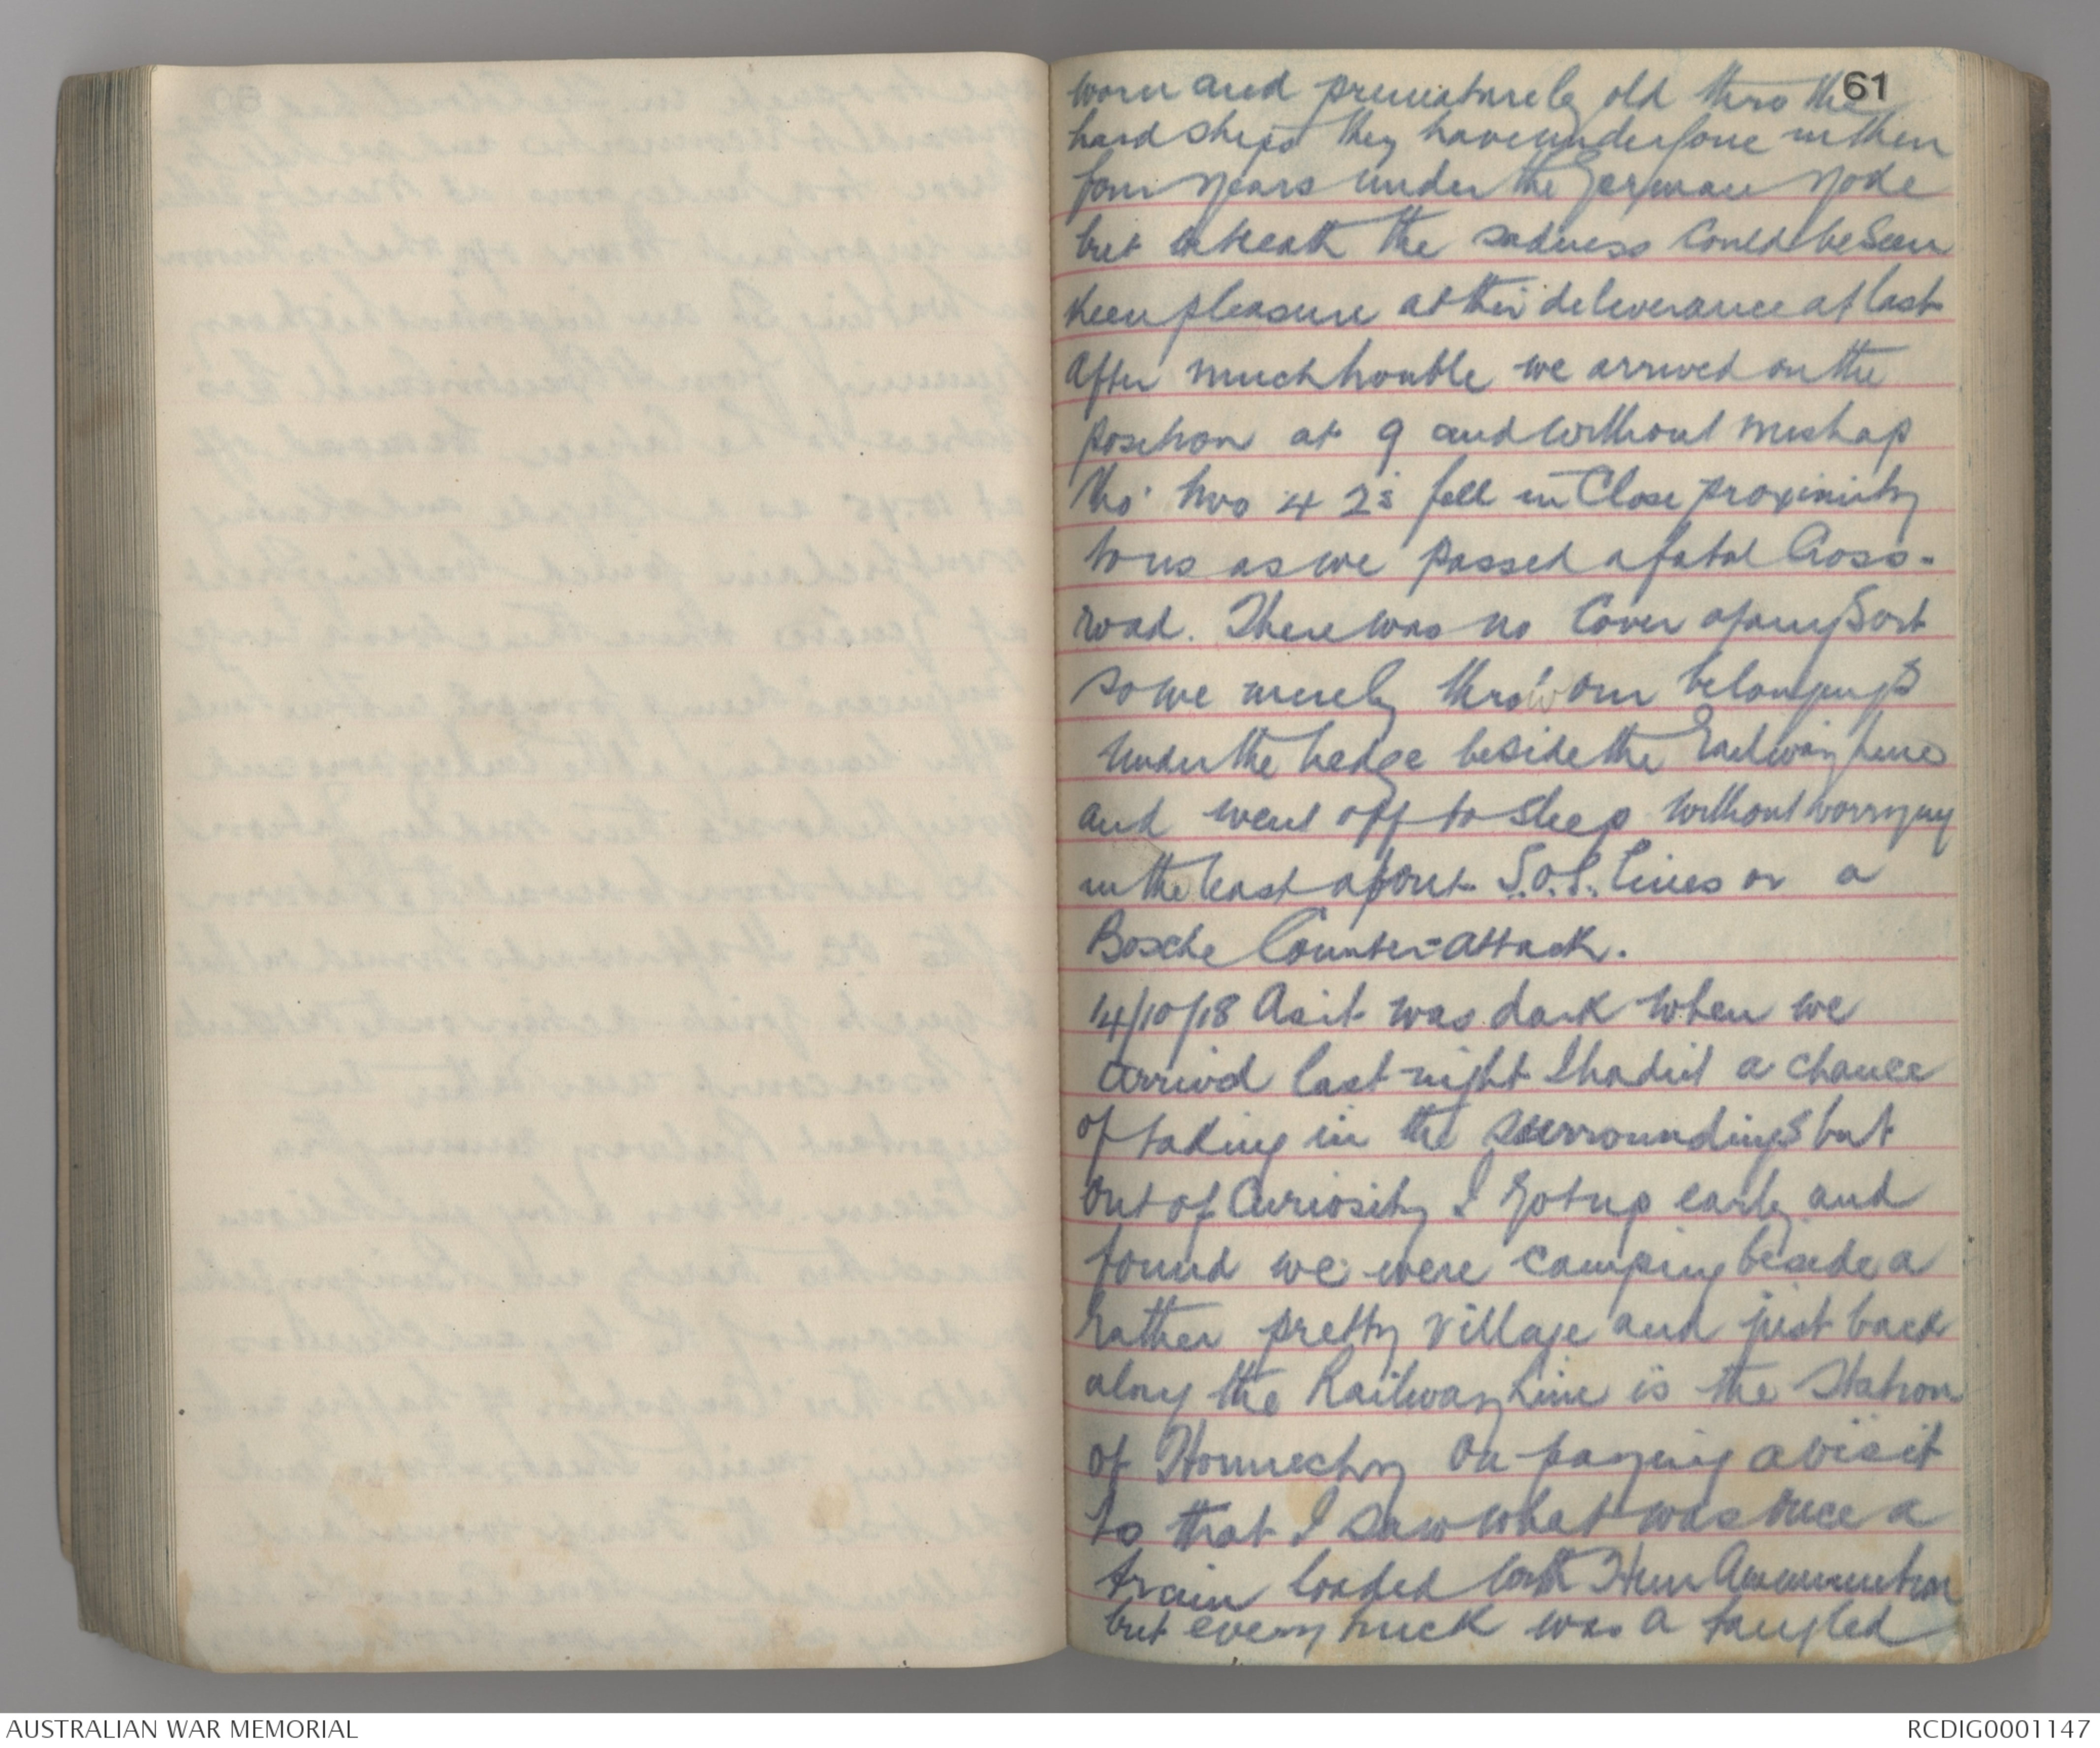 61
worn and prematurely old thro the
hardships they have undergone in their
four years under the German yoke
but beneath the sadness could be seen
keen pleasure at their deliverance at last
After much trouble we arrived on the
position at 9 and without mishap
tho' two 4 2s fell in close proximity
to us as we passed a fatal Cross-
road. There was no Cover of any Sort
so we merely throw our belongings
under the hedge beside the Railway line
and went off to sleep without worrying
in the least about S.O.S. lines or a
Bosche Counter-attack.
14/10/18 As it was dark when we
arrived last night I hadnt a chance
of taking in the surroundings but
out of Curiosity I got up early and
found we were camping beside a
rather pretty village and just back
along the Railway Line is the Station
of Honnechy On paying a visit
to that I saw what was once a
train loaded with Hun Ammunition
but every truck was a tangled
AUSTRALIAN WAR MEMORIAL
RCDIG0001147